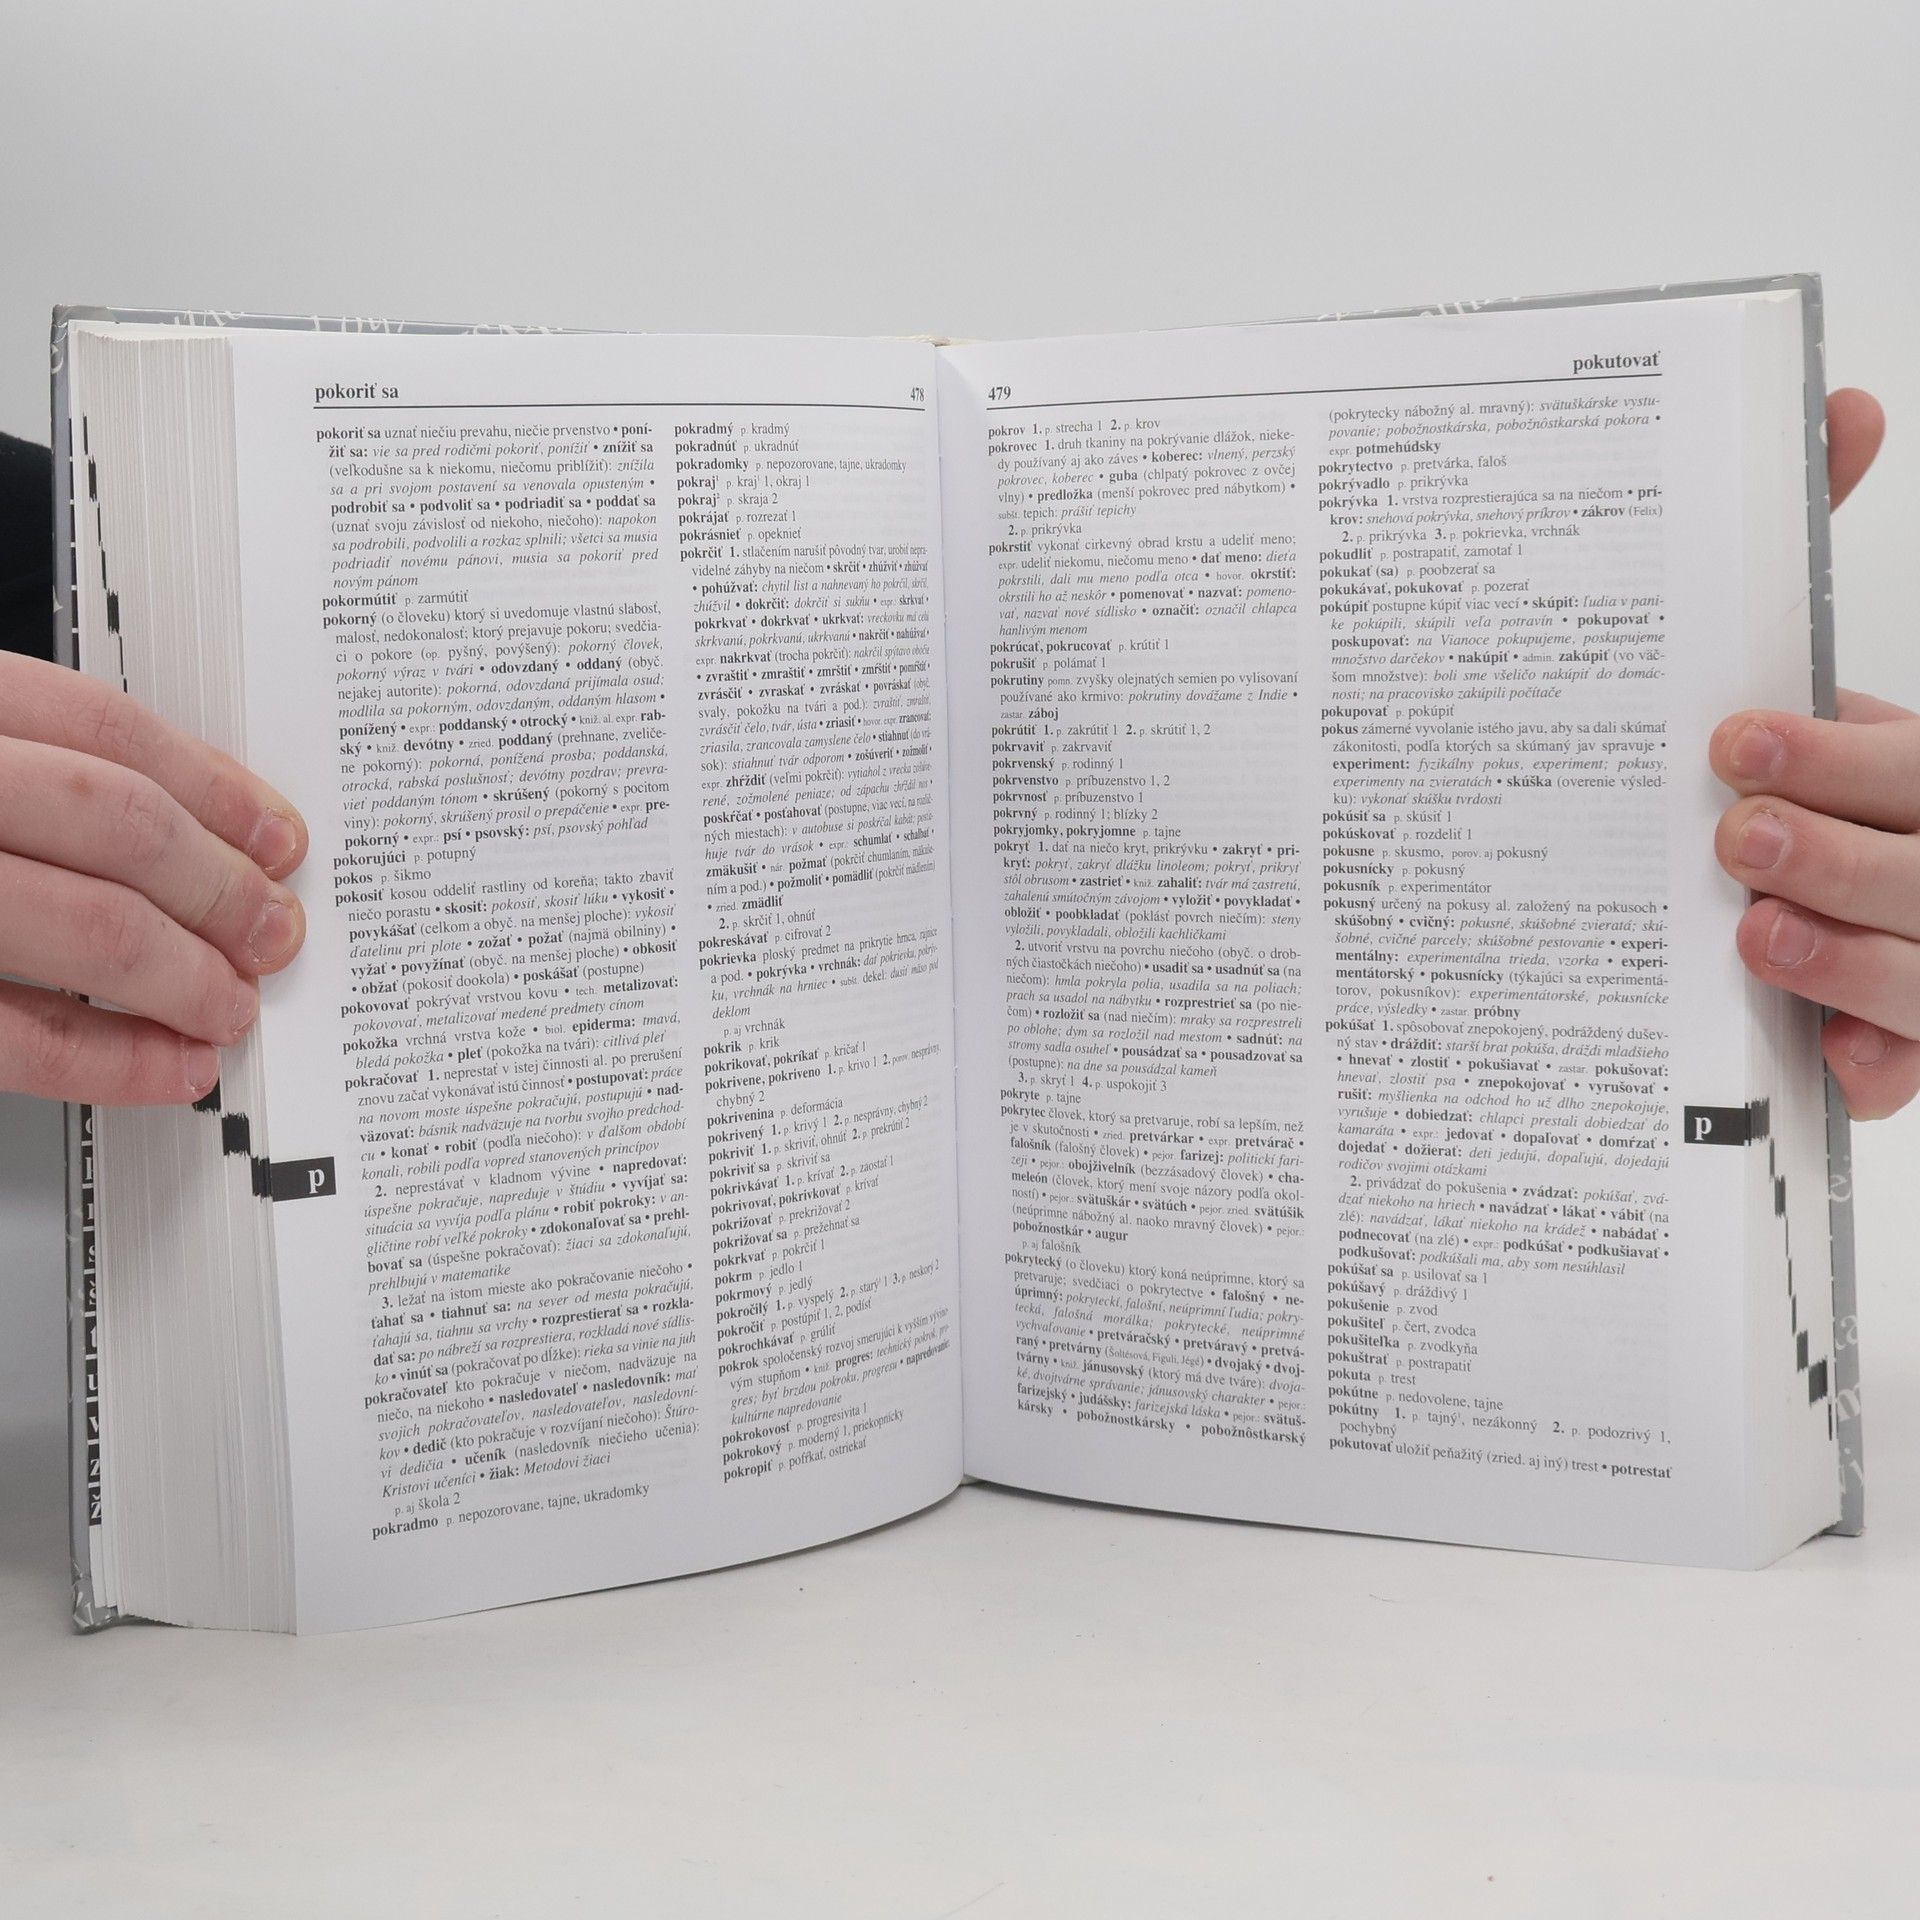 pokoriť sa
478
pokoriť sa uznať niečiu prevahu, niečie prvenstvo • poní-
žiť sa: vie sa pred rodičmi pokoriť, ponížiť • znížiť sa
(veľkodušne sa k niekomu, niečomu priblížiť): znížila
sa a pri svojom postavení sa venovala opusteným •
podrobiť sa • podvoliť sa • podriadiť sa • poddať sa
(uznať svoju závislosť od niekoho, niečoho): napokon
sa podrobili, podvolili a rozkaz splnili; všetci sa musia
podriadiť novému pánovi, musia sa pokoriť pred
novým pánom
pokormútiť p. zarmútiť
pokorný (o človeku) ktorý si uvedomuje vlastnú slabosť,
malosť, nedokonalosť; ktorý prejavuje pokoru; svedčia-
ci o pokore (op. pyšný, povýšený): pokorný človek,
pokorný výraz v tvári • odovzdaný • oddaný (obyč.
nejakej autorite): pokorná, odovzdaná prijímala osud;
modlila sa pokorným, odovzdaným, oddaným hlasom •
ponížený • expr.: poddanský • otrocký • kniž. al. expr. rab-
ský • kniž. devótny • zried. poddaný (prehnane, zveliče-
ne pokorný): pokorná, ponížená prosba; poddanská,
otrocká, rabská poslušnosť; devótny pozdrav; prevra-
vieť poddaným tónom • skrúšený (pokorný s pocitom
viny): pokorný, skrúšený prosil o prepáčenie • expr. pre-
pokorný • expr.: psí • psovský: psí, psovský pohľad
pokorujúci p. potupný
pokos p. šikmo
pokosiť kosou oddeliť rastliny od koreňa; takto zbaviť
niečo porastu • skosiť: pokosiť, skosiť lúku • vykosiť •
povykášať (celkom a obyč. na menšej ploche): vykosiť
ďatelinu pri plote • zožať • požať (najmä obilniny) •
vyžať • povyžínať (obyč. na menšej ploche) • obkosiť
• obžať (pokosiť dookola) • poskášať (postupne)
pokovovať pokrývať vrstvou kovu • tech. metalizovať:
pokovovať, metalizovať medené predmety cínom
pokožka vrchná vrstva kože • biol. epiderma: tmavá,
bledá pokožka • pleť (pokožka na tvári): citlivá pleť
pokračovať 1. neprestať v istej činnosti al. po prerušení
znovu začať vykonávať istú činnosť • postupovať: práce
na novom moste úspešne pokračujú, postupujú • nad-
väzovať: básnik nadväzuje na tvorbu svojho predchod-
cu • konať • robiť (podľa niečoho): v ďalšom období
konali, robili podľa vopred stanovených princípov
2. neprestávať v kladnom vývine • napredovať:
úspešne pokračuje, napreduje v štúdiu • vyvíjať sa:
situácia sa vyvíja podľa plánu • robiť pokroky: v an-
gličtine robí veľké pokroky • zdokonaľovať sa • prehl-
bovať sa (úspešne pokračovať): žiaci sa zdokonaľujú,
prehlbujú v matematike
3. ležať na istom mieste ako pokračovanie niečoho •
ťahať sa • tiahnuť sa: na sever od mesta pokračujú,
ťahajú sa, tiahnu sa vrchy • rozprestierať sa • rozkla-
dať sa: po nábreží sa rozprestiera, rozkladá nové sídlis-
ko • vinúť sa (pokračovať po dĺžke): rieka sa vinie na juh
pokračovateľ kto pokračuje v niečom, nadväzuje na
niečo, na niekoho • nasledovateľ • nasledovník: mať
svojich pokračovateľov, nasledovateľov, nasledovní-
kov • dedič (kto pokračuje v rozvíjaní niečoho): Štúro-
vi dedičia • učeník (nasledovník niečieho učenia):
Kristovi učeníci • žiak: Metodovi žiaci
p. aj škola 2
pokradmo p. nepozorovane, tajne, ukradomky
pokradmý p. kradmý
pokradnúť p. ukradnúť
pokradomky p. nepozorovane, tajne, ukradomky
pokraj¹ p. kraj¹ 1, okraj 1
pokraj² p. skraja 2
pokrájať p. rozrezať 1
pokrásnieť p. opeknieť
pokrčiť 1. stlačením narušiť pôvodný tvar, urobiť nepra-
videlné záhyby na niečom • skrčiť • zhúžviť • zhúžvať
• pohúžvať: chytil list a nahnevaný ho pokrčil, skrčil,
zhúžvil • dokrčiť: dokrčiť si sukňu • expr.: skrkvať •
pokrkvať • dokrkvať • ukrkvať: vreckovku má celú
skrkvanú, pokrkvanú, ukrkvanú • nakrčiť • nahúžvať •
expr. nakrkvať (trocha pokrčiť): nakrčil spýtavo obočie
• zvraštiť • zmraštiť • zmrštiť • zmŕštiť • pomŕštiť •
zvrásčiť • zvraskať • zvráskať • povráskať (obyč.
svaly, pokožku na tvári a pod.): zvraštiť, zmraštiť,
zvrásčiť čelo, tvár, ústa • zriasiť • hovor. expr. zrancovať:
zriasila, zrancovala zamyslene čelo • stiahnuť (do vrá-
sok): stiahnuť tvár odporom • zošúveriť • zožmoliť •
expr. zhŕždiť (veľmi pokrčiť): vytiahol z vrecka zošúve-
rené, zožmolené peniaze; od zápachu zhŕždil nos •
poskŕčať • posťahovať (postupne, viac vecí, na rozlič-
ných miestach): v autobuse si poskŕčal kabát; posťa-
huje tvár do vrások • expr.: schumlať • schalbať •
zmäkušiť • nár. požmať (pokrčiť chumlaním, mäkuše-
ním a pod.) • požmoliť • pomädliť (pokrčiť mädlením)
• zried. zmädliť
2. p. skrčiť 1, ohnúť
pokreskávať p. cifrovať 2
pokrievka ploský predmet na prikrytie hrnca, rajnice
a pod. • pokrývka • vrchnák: dať pokrievku, pokrýv-
ku, vrchnák na hrniec • subšt. dekel: dusiť mäso pod
deklom
p. aj vrchnák
pokrik p. krik
pokrikovať, pokríkať p. kričať 1
pokrivene, pokriveno 1. p. krivo 1 2. porov. nesprávny,
chybný 2
pokrivenina p. deformácia
pokrivený 1. p. krivý 1 2. p. nesprávny, chybný 2
pokriviť 1. p. skriviť, ohnúť 2. p. prekrútiť 2
pokriviť sa p. skriviť sa
pokrivkávať 1. p. krívať 2. p. zaostať 1
pokrivovať, pokrivkovať p. krívať
pokrižovať p. prekrižovať 2
pokrižovať sa p. prežehnať sa
pokrkvať p. pokrčiť 1
pokrm p. jedlo 1
pokrmový p. jedlý
pokročilý 1. p. vyspelý 2. p. starý¹ 1 3. p. neskorý 2
pokročiť p. postúpiť 1, 2, podísť
pokrochkávať p. grúliť
pokrok spoločenský rozvoj smerujúci k vyšším vývino-
vým stupňom • kniž. progres: technický pokrok, pro-
gres; byť brzdou pokroku, progresu • napredovanie:
kultúrne napredovanie
pokrokovosť p. progresivita 1
pokrokový p. moderný 1, priekopnícky
pokropiť p. pofŕkať, ostriekať
p
479
pokutovať
pokrov 1. p. strecha 1 2. p. krov
pokrovec 1. druh tkaniny na pokrývanie dlážok, nieke-
dy používaný aj ako záves • koberec: vlnený, perzský
pokrovec, koberec • guba (chlpatý pokrovec z ovčej
vlny) • predložka (menší pokrovec pred nábytkom) •
subšt. tepich: prášiť tepichy
2. p. prikrývka
pokrstiť vykonať cirkevný obrad krstu a udeliť meno;
expr. udeliť niekomu, niečomu meno • dať meno: dieťa
pokrstili, dali mu meno podľa otca • hovor. okrstiť:
okrstili ho až neskôr • pomenovať • nazvať: pomeno-
vať, nazvať nové sídlisko • označiť: označil chlapca
hanlivým menom
pokrúcať, pokrucovať p. krútiť 1
pokrušiť p. polámať 1
pokrutiny pomn. zvyšky olejnatých semien po vylisovaní
používané ako krmivo: pokrutiny dovážame z Indie •
zastar. záboj
pokrútiť 1. p. zakrútiť 1 2. p. skrútiť 1, 2
pokrvaviť p. zakrvaviť
pokrvenský p. rodinný 1
pokrvenstvo p. príbuzenstvo 1, 2
pokrvnosť p. príbuzenstvo 1
pokrvný p. rodinný 1; blízky 2
pokryjomky, pokryjomne p. tajne
pokryť 1. dať na niečo kryt, prikrývku • zakryť • pri-
kryť: pokryť, zakryť dlážku linoleom; pokryť, prikryť
stôl obrusom • zastrieť • kniž. zahaliť: tvár má zastretú,
zahalenú smútočným závojom • vyložiť • povykladať •
obložiť • poobkladať (poklásť povrch niečím): steny
vyložili, povykladali, obložili kachličkami
2. utvoriť vrstvu na povrchu niečoho (obyč. o drob-
ných čiastočkách niečoho) • usadiť sa • usadnúť sa (na
niečom): hmla pokryla polia, usadila sa na poliach;
prach sa usadol na nábytku • rozprestrieť sa (po nie-
čom) • rozložiť sa (nad niečím): mraky sa rozprestreli
po oblohe; dym sa rozložil nad mestom • sadnúť: na
stromy sadla osuheľ • pousádzať sa • pousadzovať sa
(postupne): na dne sa pousádzal kameň
3. p. skryť 1 4. p. uspokojiť 3
pokryte p. tajne
pokrytec človek, ktorý sa pretvaruje, robí sa lepším, než
je v skutočnosti • zried. pretvárkar • expr. pretvárač •
falošník (falošný človek) • pejor. farizej: politickí fari-
zeji • pejor.: obojživelník (bezzásadový človek) • cha-
meleón (človek, ktorý mení svoje názory podľa okol-
ností) • pejor.: svätuškár • svätúch • pejor. zried. svätúšik
(neúprimne nábožný al. naoko mravný človek) • pejor.:
pobožnostkár • augur
p. aj falošník
pokrytecký (o človeku) ktorý koná neúprimne, ktorý sa
pretvaruje; svedčiaci o pokrytectve • falošný • ne-
úprimný: pokryteckí, falošní, neúprimní ľudia; pokry-
tecká, falošná morálka; pokrytecké, neúprimné
vychvaľovanie • pretváračský • pretváravý • pretvá-
raný • pretvárny (Šoltésová, Figuli, Jégé) • dvojaký • dvoj-
tvárny • kniž. jánusovský (ktorý má dve tváre): dvoja-
ké, dvojtvárne správanie; jánusovský charakter • pejor.:
farizejský • judášsky: farizejská láska • pejor.: svätuš-
kársky • pobožnostkársky • pobožnôstkarský
(pokrytecky nábožný al. mravný): svätuškárske vystu-
povanie; pobožnostkárska, pobožnôstkarská pokora •
expr. potmehúdsky
pokrytectvo p. pretvárka, faloš
pokrývadlo p. prikrývka
pokrývka 1. vrstva rozprestierajúca sa na niečom • prí-
krov: snehová pokrývka, snehový príkrov • zákrov (Felix)
2. p. prikrývka 3. p. pokrievka, vrchnák
pokudliť p. postrapatiť, zamotať 1
pokukať (sa) p. poobzerať sa
pokukávať, pokukovať p. pozerať
pokúpiť postupne kúpiť viac vecí • skúpiť: ľudia v pani-
ke pokúpili, skúpili veľa potravín • pokupovať •
poskupovať: na Vianoce pokupujeme, poskupujeme
množstvo darčekov • nakúpiť • admin. zakúpiť (vo väč-
šom množstve): boli sme všeličo nakúpiť do domác-
nosti; na pracovisko zakúpili počítače
pokupovať p. pokúpiť
pokus zámerné vyvolanie istého javu, aby sa dali skúmať
zákonitosti, podľa ktorých sa skúmaný jav spravuje •
experiment: fyzikálny pokus, experiment; pokusy,
experimenty na zvieratách • skúška (overenie výsled-
ku): vykonať skúšku tvrdosti
pokúsiť sa p. skúsiť 1
pokúskovať p. rozdeliť 1
pokusne p. skusmo, porov. aj pokusný
pokusnícky p. pokusný
pokusník p. experimentátor
pokusný určený na pokusy al. založený na pokusoch •
skúšobný • cvičný: pokusné, skúšobné zvieratá; skú-
šobné, cvičné parcely; skúšobné pestovanie • experi-
mentálny: experimentálna trieda, vzorka • experi-
mentátorský • pokusnícky (týkajúci sa experimentá-
torov, pokusníkov): experimentátorské, pokusnícke
práce, výsledky • zastar. próbny
pokúšať 1. spôsobovať znepokojený, podráždený dušev-
ný stav • dráždiť: starší brat pokúša, dráždi mladšieho
• hnevať • zlostiť • pokušiavať • zastar. pokušovať:
hnevať, zlostiť psa • znepokojovať • vyrušovať •
rušiť: myšlienka na odchod ho už dlho znepokojuje,
vyrušuje • dobiedzať: chlapci prestali dobiedzať do
kamaráta • expr.: jedovať • dopaľovať • domŕzať •
dojedať • dožierať: deti jedujú, dopaľujú, dojedajú
rodičov svojimi otázkami
2. privádzať do pokušenia • zvádzať: pokúšať, zvá-
dzať niekoho na hriech • navádzať • lákať • vábiť (na
zlé): navádzať, lákať niekoho na krádež • nabádať •
podnecovať (na zlé) • expr.: podkúšať • podkušiavať •
podkušovať: podkúšali ma, aby som nesúhlasil
pokúšať sa p. usilovať sa 1
pokúšavý p. dráždivý 1
pokušenie p. zvod
pokušiteľ p. čert, zvodca
pokušiteľka p. zvodkyňa
pokuštrať p. postrapatiť
pokuta p. trest
pokútne p. nedovolene, tajne
pokútny 1. p. tajný¹, nezákonný 2. p. podozrivý 1,
pochybný
pokutovať uložiť peňažitý (zried. aj iný) trest • potrestať
p